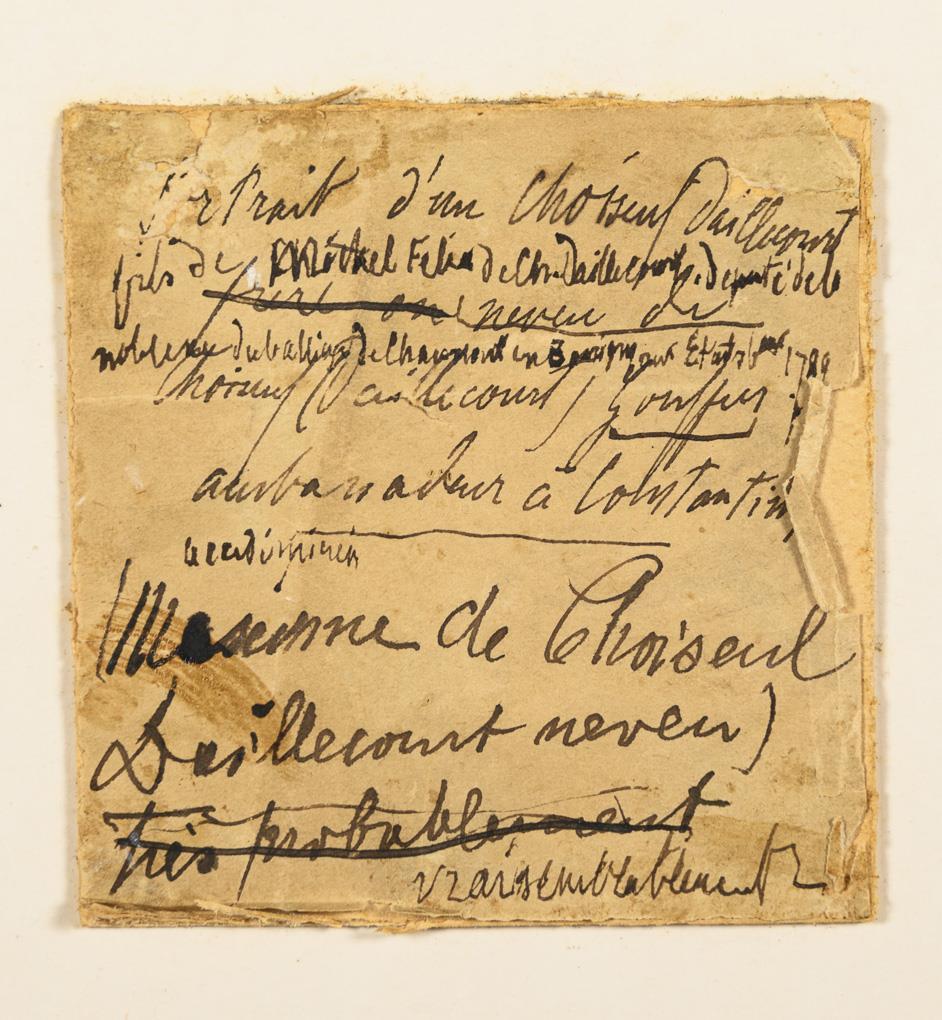 Portrait d'un Choiseul Daillecourt
fils de Michel Felix de Ch. Daillecourt. député de la
frère ou neveu de
noblesse du balliage de Chaumont en Etats 1789
Choiseul (Daillecourt) Gouffier
ambassadeur à Constantin,
(Maxime de Choiseul
Daillecourt neveu)
très probablement
vraisemblablement